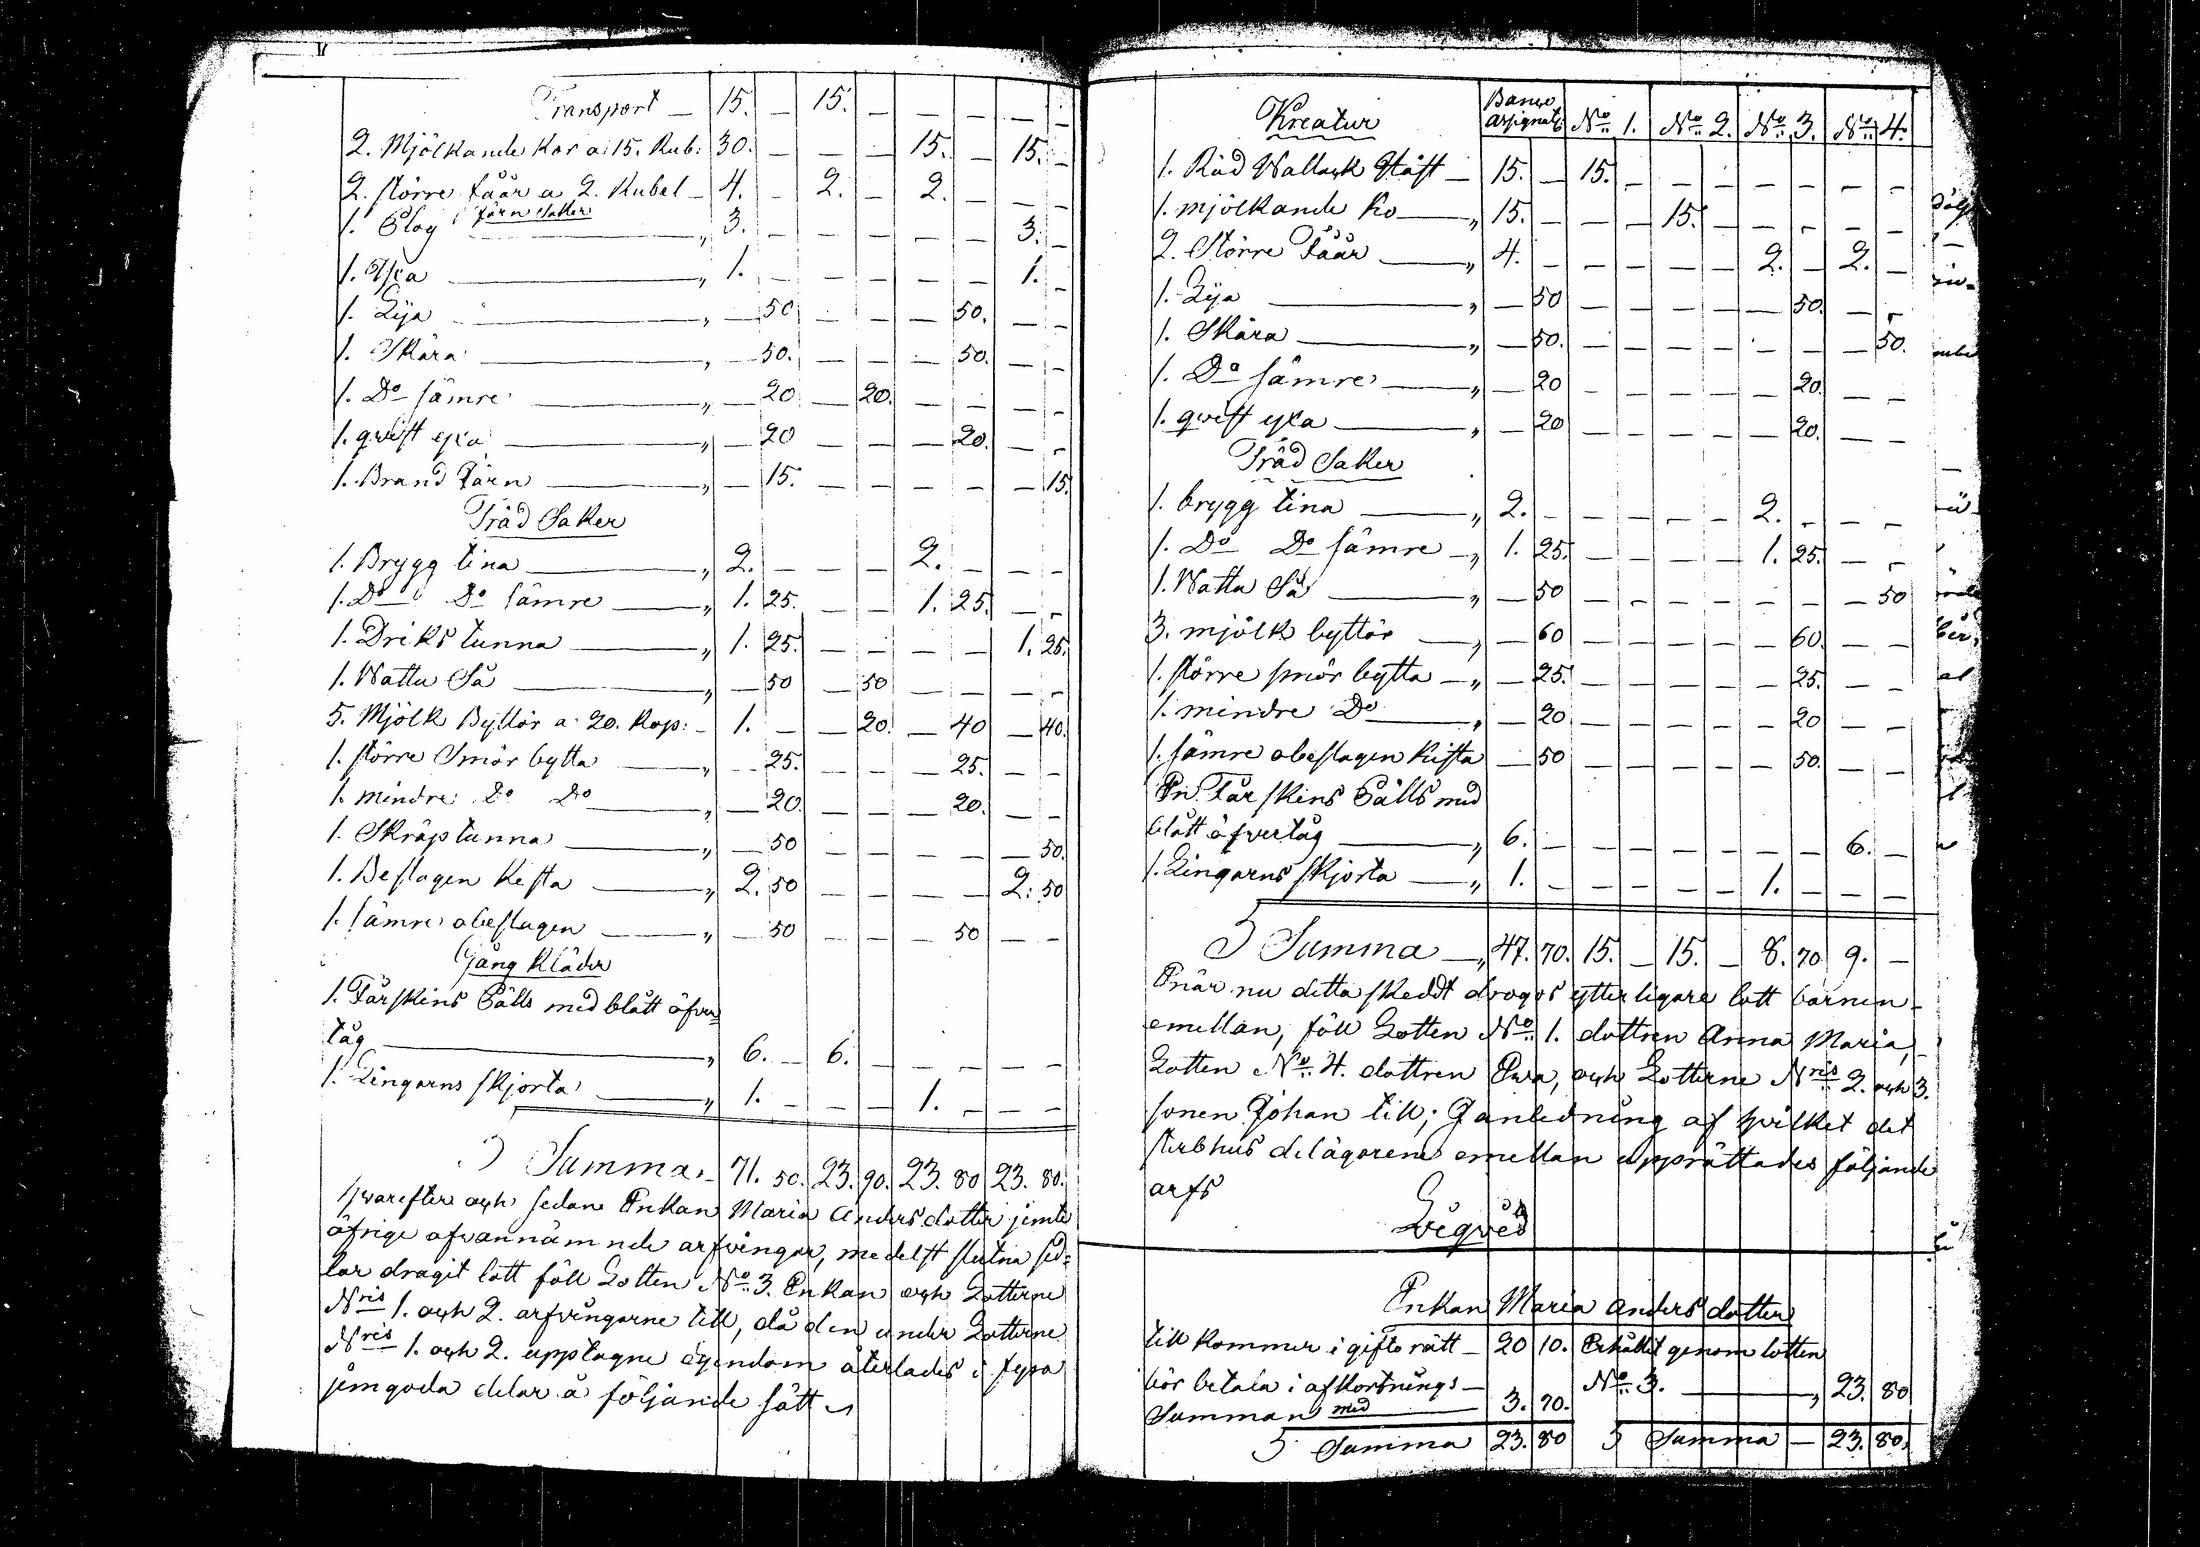 Transport — 15. — 15. — — — — —
2. Mjölkande Kor a: 15. Rub: 30. — — — 15. — 15. —
2. större Fåår a 2. Rubel — 4. — 2. — 2. — — —
Järn Saker
1. Plog — „ 3. — — — — — 3. —
1. Yxa — „ 1. — — — — — 1. —
1. Lija — „ — 50 — — — 50. — —
1. Skära — „ — 50. — — — 50. — —
1. Do sämre — „ — 20 — 20. — — — —
1. qvist yxa — „ — 20 — — — 20. — —
1. Brand Järn — „ — 15. — — — — — 15.
Träd Saker
1. Brygg tina — „ 2. — — — 2. — — —
1. Do Do sämre — „ 1. 25. — — 1. 25. — —
1. Driks tunna — „ 1. 25. — — — — 1. 25.
1. Wattu Så — „ — 50 — 50 — — — —
5. Mjölk Byttör a 20. Kop: — 1. — — 20. — 40 — 40.
1. större Smör bytta — „ — 25. — — — 25. — —
1. mindre Do Do — „ — 20. — — — 20. — —
1. Skräptunna — „ — 50 — — — — — 50.
1. Beslagen Kista — „ 2. 50 — — — — 2. 50
1. sämre obeslagen — „ — 50 — — — 50 — —
Gång Kläder
1. Fårskins Pälls med blått öfver
tåg — „ 6. — 6. — — — — —
1. Lingarns skjorta — „ 1. — — — 1. — — —
Summa — 71. 50. 23. 90. 23. 80 23. 80.
Hvarefter och sedan Enkan Maria Andersdotter jemte
öfrige ofvannämnde arfvingar, medelst slutna sed-
lar dragit lått föll Lotten No 3. Enkan och Lotterne
Nris 1. och 2. arfvingarne till, då den under Lotterne
Nris 1. och 2. upptagne egendom återlades i fyra
jemgoda delar å följande sätt
Kreatur Banco Assignat: No 1. No 2. No 3. No 4.
1. Röd Wallack Häst — 15. — 15. — — — — — — —
1. mjölkande Ko — „ 15. — — — 15. — — — — —
2. Större Fåår — „ 4. — — — — — 2. — 2. —
1. Lija — „ — 50 — — — — — 50. — —
1. Skära — „ — 50. — — — — — — — 50.
1. Do sämre — „ — 20 — — — — — 20. — —
1. qvist yxa — „ — 20 — — — — — 20. — —
Träd Saker
1. brygg tina — „ 2. — — — — — 2. — — —
1. Do Do sämre — „ 1. 25. — — — — 1. 25. — —
1. Wattu Så — „ — 50 — — — — — — — 50
3. mjölk byttör — „ — 60 — — — — — 60. — —
1. större smör bytta — „ — 25. — — — — — 25. — —
1. mindre Do — „ — 20 — — — — — 20 — —
1. sämre obeslagen Kista — 50 — — — — — 50. — —
En Fårskins Pälls med
blått öfvertåg — „ 6. — — — — — — — 6. —
1. Lingarns skjorta — „ 1. — — — — — 1. — — —
Summa — „ 47. 70. 15. — 15. — 8. 70 9. —
Enär nu detta skedt drogos ytterligare lott barnen
emellan, föll Lotten No 1. dottren Anna Maria,
Lotten No 4. dottren Eva, och Lotterne Nris 2. och 3.
sonen Johan till; I anledning af hvilket det
sterbhus delägarene emellan upprättades följande
arfs
Liqvid
Enkan Maria Andersdotter
till kommer i giftorätt — 20 10. Erhållit genom lotten
bör betala i afkortnings- No 3. — „ 23. 80
Summan med — 3. 70.
Summa 23. 80 Summa — 23. 80.